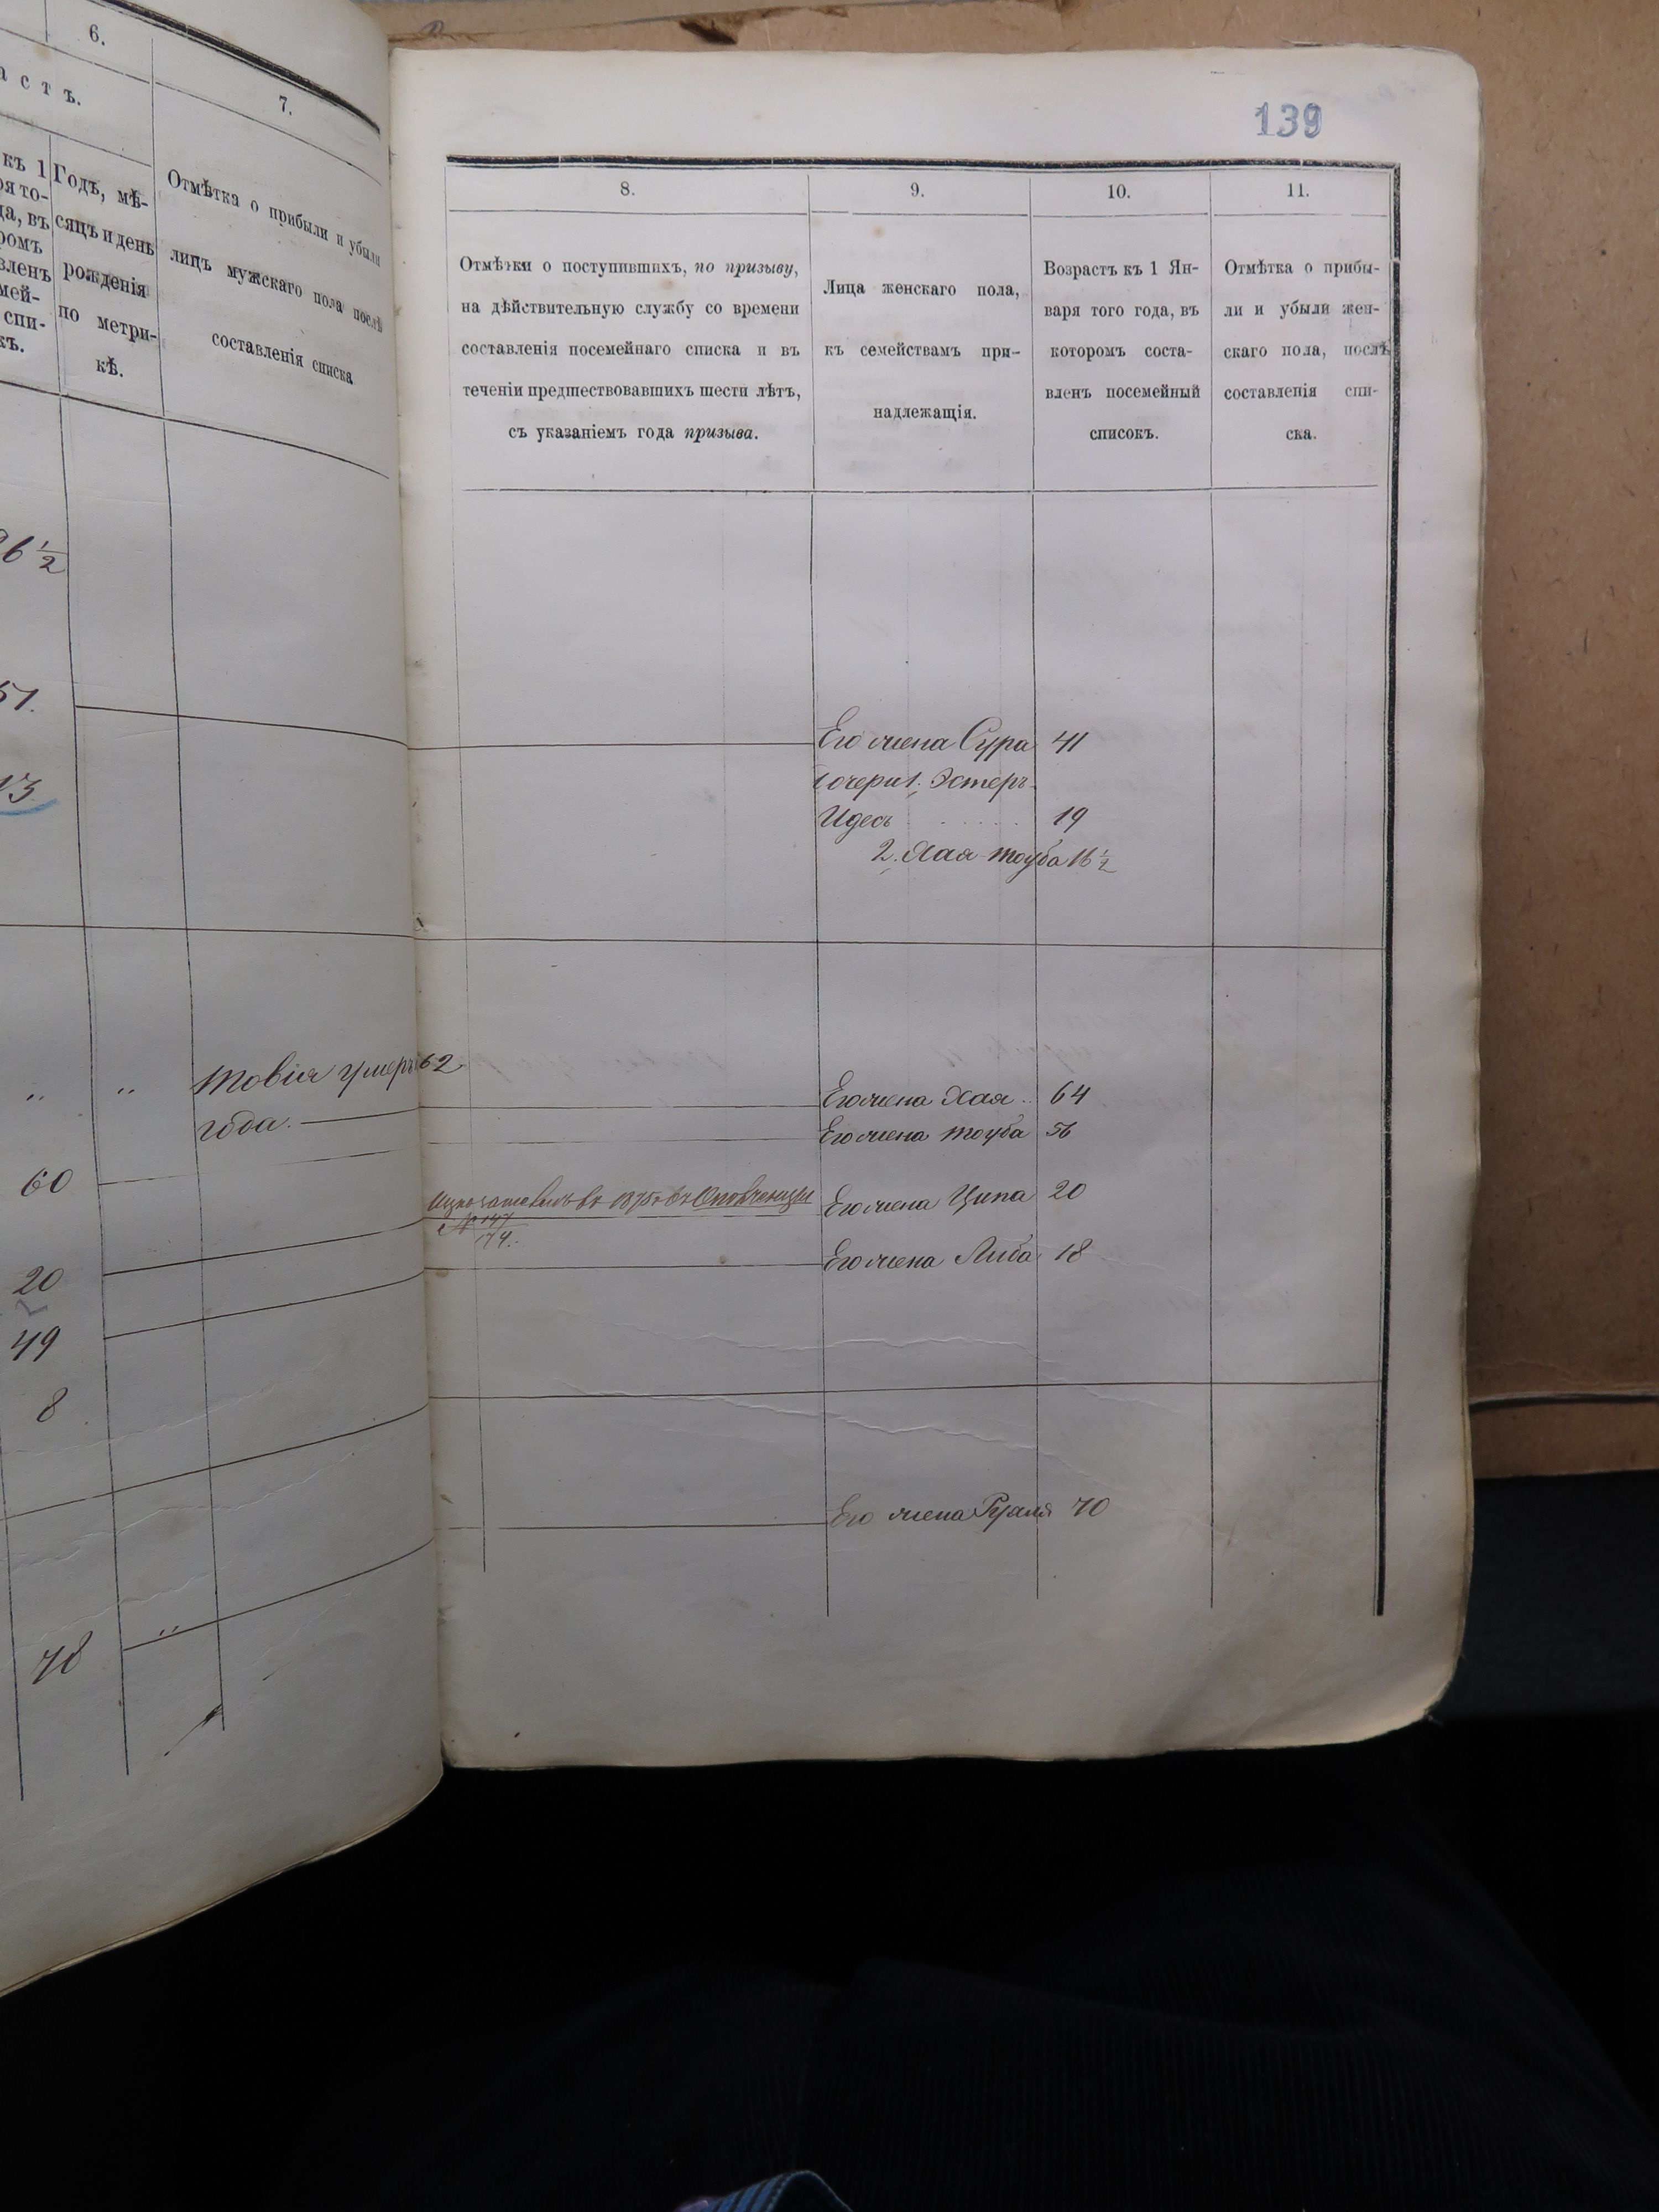 6.
7.
астъ.
къ 1
Годъ, мѣ-
сяцъ и день
рожденія
по метри-
кѣ.
Отмѣтка о прибыли и убыли
лицъ мужскаго пола послѣ
составленія списка
26 1/2
51.
13
Товія умеръ 62
года.
60
20
49
8
78
139
8.
9.
10.
11.
Отмѣтки о поступившихъ, по призыву,
на дѣйствительную службу со времени
составленія посемейнаго списка и въ
теченіи предшествовавшихъ шести лѣтъ,
съ указаніемъ года призыва.
Лица женскаго пола,
къ семействамъ при-
надлежащія.
Возрастъ къ 1 Ян-
варя того года, въ
которомъ соста-
вленъ посемейный
списокъ.
Отмѣтка о прибы-
ли и убыли жен-
скаго пола, послѣ
составленія спи-
ска.
Его жена Сура 41
дочери 1. Эстеръ-
Идесь 19
2. Хая-Тоуба 16 1/2
Его жена Хая 64
Его жена Тоуба 56
въ 1875 г. въ Ополченцы
№ 147
174.
Его жена Ципа 20
Его жена Либа 18
Его жена 70